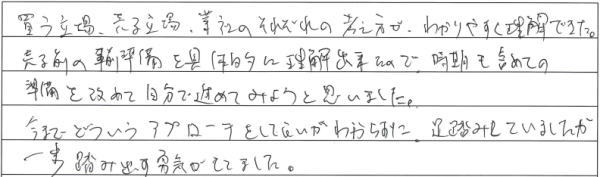 買う立場、売る立場、業社のそれぞれの考え方が、わかりやすく理解できた。
売る前の事前準備を具体的に理解出来たので、時期も含めての
準備を改めて自分で進めてみようと思いました。
今までどういうアプローチをして良いかわからずに、足踏みしていましたが
一歩踏み出す勇気がもてました。